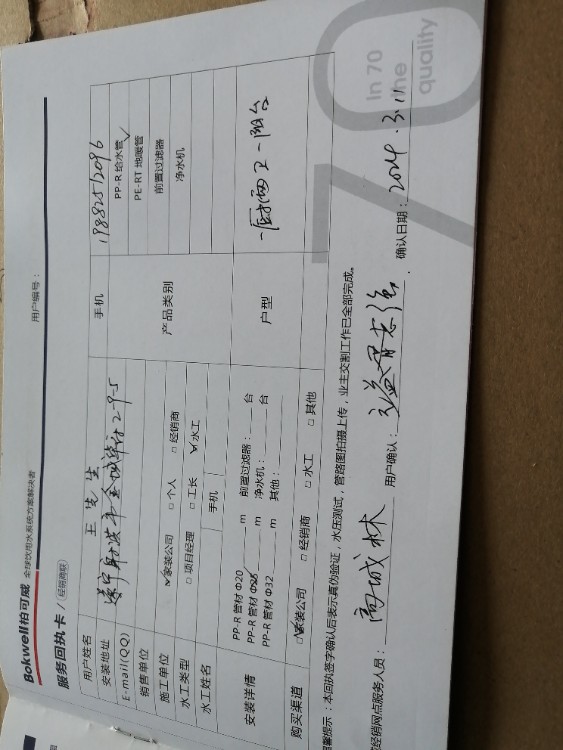 Bokwell柏可威 全球饮用水系统方案解决者
服务回执卡 / 经销商联
用户编号：
用户姓名 王先生 手机 19882512096
安装地址
E-mail(QQ)
产品类别 PP-R 给水管 ✓
PE-RT 地暖管
前置过滤器
净水机
销售单位
施工单位 ☑家装公司 □个人 □经销商
水工类型 □项目经理 □工长 ☑水工
水工姓名 手机
户型 一厨两卫一阳台
安装详情 PP-R 管材 Φ20 m 前置过滤器： 台
PP-R 管材 Φ25 m 净水机： 台
PP-R 管材 Φ32 m 其他：
购买渠道 ☑家装公司 □经销商 □水工 □其他
提示：本回执签字确认后表示真伪验证，水压测试，管路图拍摄上传，业主交割工作已全部完成。
经销网点服务人员： 用户确认： 确认日期：
70
In 70
the
quality